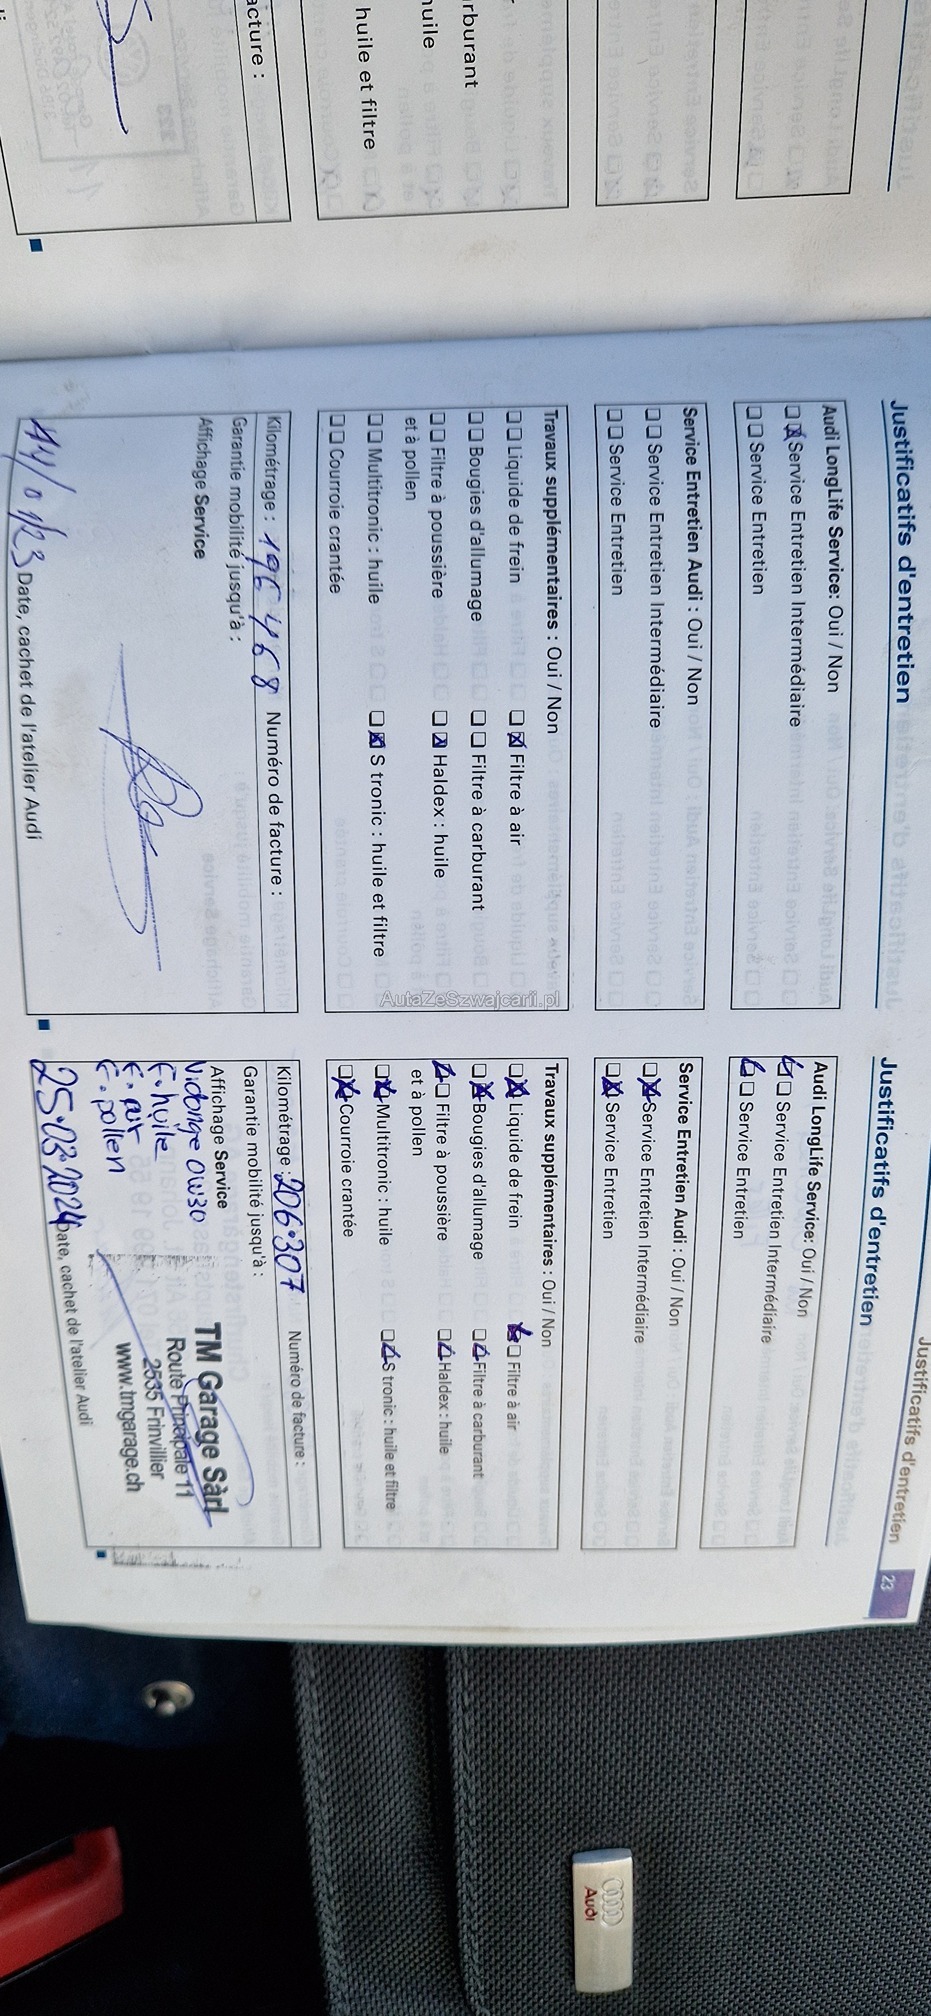 acture :
huile et filtre
huile
rburant
Justificatifs d'entretien
Audi LongLife Service: Oui / Non
Service Entretien Intermédiaire
Service Entretien
Service Entretien Audi : Oui / Non
Service Entretien Intermédiaire
Service Entretien
Travaux supplémentaires : Oui / Non
Liquide de frein
Filtre à air
Bougies d'allumage
Filtre à carburant
Filtre à poussière
et à pollen
Haldex : huile
Multitronic : huile
S tronic : huile et filtre
Courroie crantée
Kilométrage : 196 468 Numéro de facture :
Garantie mobilité jusqu'à :
Affichage Service
Date, cachet de l'atelier Audi
AutaZeSzwajcarii.pl
Justificatifs d'entretien 23
Justificatifs d'entretien
Audi LongLife Service: Oui / Non
Service Entretien Intermédiaire
Service Entretien
Service Entretien Audi : Oui / Non
Service Entretien Intermédiaire
Service Entretien
Travaux supplémentaires : Oui / Non
Liquide de frein
Filtre à air
Bougies d'allumage
Filtre à carburant
Filtre à poussière
et à pollen
Haldex : huile
Multitronic : huile
S tronic : huile et filtre
Courroie crantée
Kilométrage : 206.307 Numéro de facture :
Garantie mobilité jusqu'à :
Affichage Service
Vidange 0W30
F. huile
F. air
F. pollen
TM Garage Sàrl
Route Principale 11
2535 Frinvillier
www.tmgarage.ch
25.03.2024 Date, cachet de l'atelier Audi
Audi